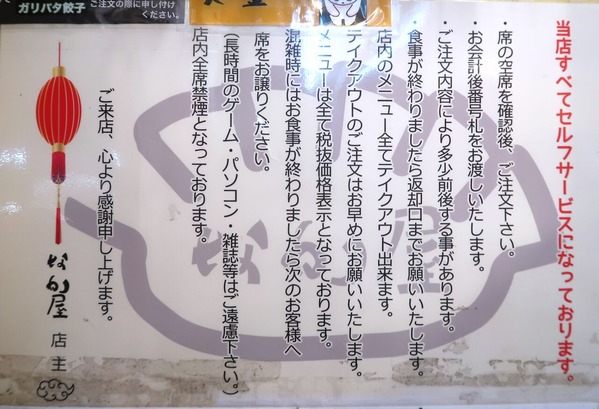 ガリバタ餃子
ご注文の際に申し付け
ください。
当店すべてセルフサービスになっております。
・席の空席を確認後、ご注文下さい。
・お会計後番号札をお渡しいたします。
・ご注文内容により多少前後する事があります。
・食事が終わりましたら返却口までお願いいたします。
店内のメニュー全てテイクアウト出来ます。
テイクアウトのご注文はお早めにお願いいたします。
メニューは全て税抜価格表示となっております。
混雑時にはお食事が終わりましたら次のお客様へ
席をお譲りください。
(長時間のゲーム・パソコン・雑誌等はご遠慮下さい。)
店内全席禁煙となっております。
ご来店、心より感謝申し上げます。
店主